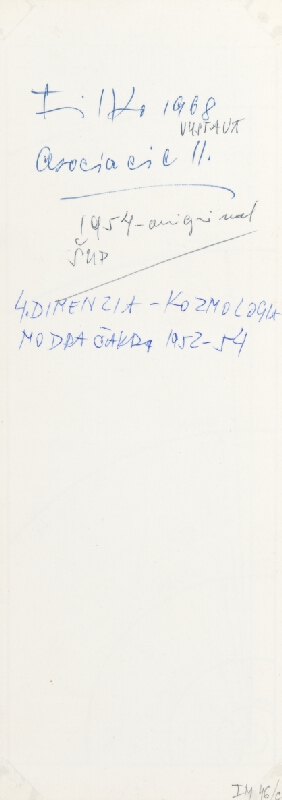 Filko 1968
VÝSTAVA
Asociácie II.
1954-originál
ŠUP
4.DIMENZIA-KOZMOLOGIA
MODRA ČAKRA 1952-54
I.M. 46/c